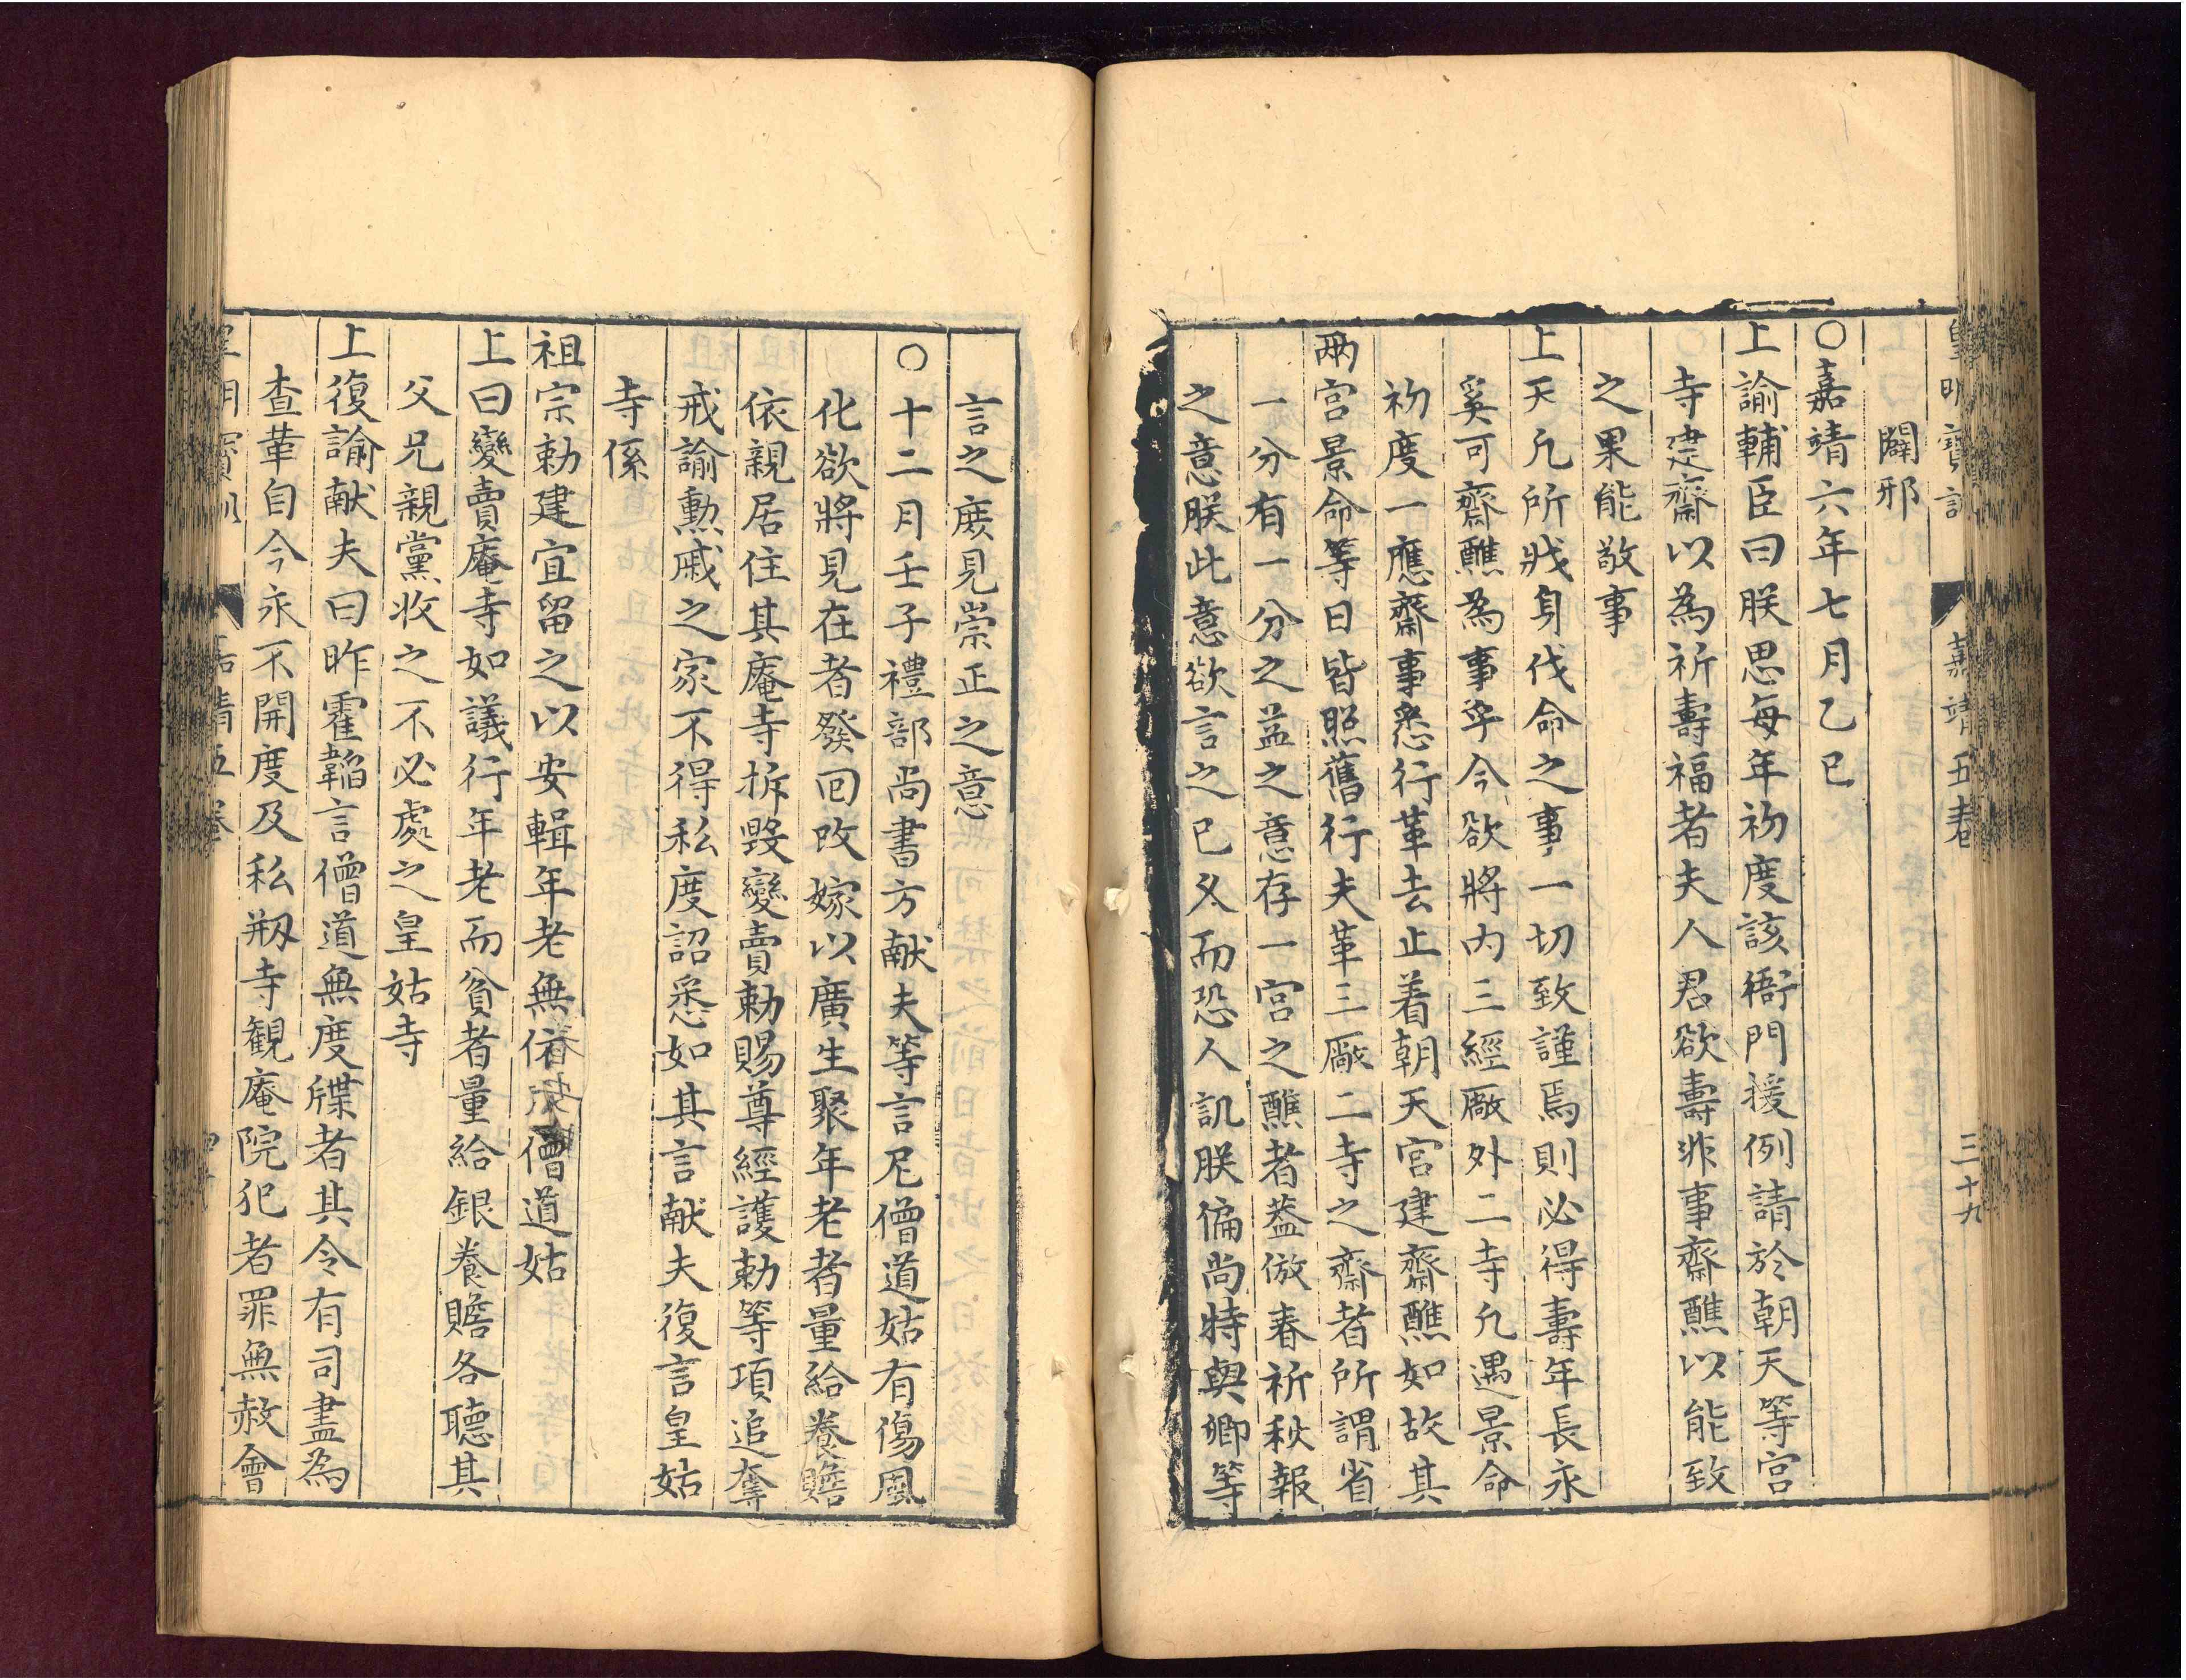 皇明寶訓 嘉靖五卷 三十九
闢邪
○嘉靖六年七月乙巳
上諭輔臣曰朕思每年初度該衙門援例請於朝天等宮
寺建齋以為祈壽福者夫人君欲壽非事齋醮以能致
之果能敬事
上天凡所戕身伐命之事一切致謹焉則必得壽年長永
奚可齋醮為事乎今欲將內三經廠外二寺凡遇景命
初度一應齋事悉行革去止着朝天宮建齋醮如故其
兩宮景命等日皆照舊行夫革三廠二寺之齋者所謂省
一分有一分之益之意存一宮之醮者葢倣春祈秋報
之意朕此意欲言之已久而恐人訊朕偏尚特與卿等
言之庻見崇正之意
○十二月壬子禮部尚書方献夫等言尼僧道姑有傷風
化欲將見在者發回改嫁以廣生聚年老者量給養贍
依親居住其庵寺拆毀變賣勅賜尊經護勅等項追奪
戒諭勲戚之家不得私度詔悉如其言献夫復言皇姑
寺係
祖宗勅建宜留之以安輯年老無僧道姑
上曰變賣庵寺如議行年老而貧者量給銀養贍各聽其
父兄親黨收之不必處之皇姑寺
上復諭献夫曰昨霍韜言僧道無度牒者其令有司盡為
查革自今永不開度及私剏寺觀庵院犯者罪無赦會
皇明寶訓 嘉靖五卷 四十